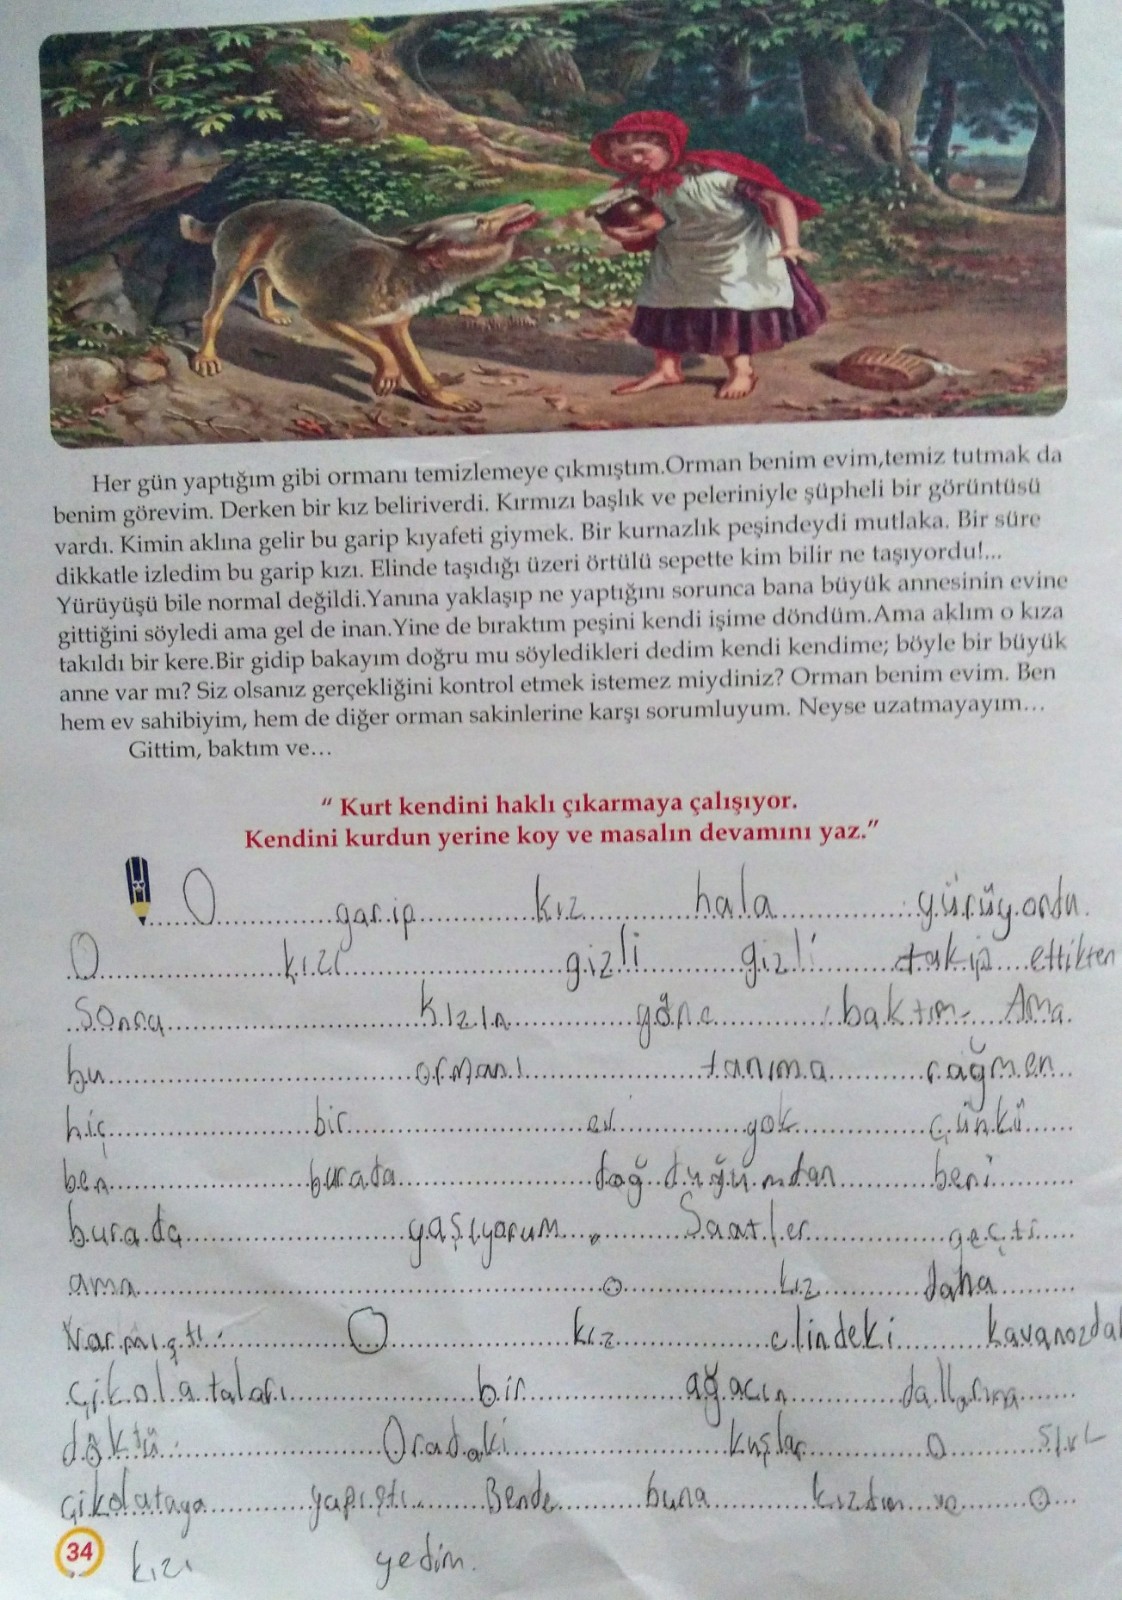 Her gün yaptığım gibi ormanı temizlemeye çıkmıştım.Orman benim evim,temiz tutmak da
benim görevim. Derken bir kız beliriverdi. Kırmızı başlık ve peleriniyle şüpheli bir görüntüsü
vardı. Kimin aklına gelir bu garip kıyafeti giymek. Bir kurnazlık peşindeydi mutlaka. Bir süre
dikkatle izledim bu garip kızı. Elinde taşıdığı üzeri örtülü sepette kim bilir ne taşıyordu!...
Yürüyüşü bile normal değildi.Yanına yaklaşıp ne yaptığını sorunca bana büyük annesinin evine
gittiğini söyledi ama gel de inan.Yine de bıraktım peşini kendi işime döndüm.Ama aklım o kıza
takıldı bir kere.Bir gidip bakayım doğru mu söyledikleri dedim kendi kendime; böyle bir büyük
anne var mı? Siz olsanız gerçekliğini kontrol etmek istemez miydiniz? Orman benim evim. Ben
hem ev sahibiyim, hem de diğer orman sakinlerine karşı sorumluyum. Neyse uzatmayayım...
Gittim, baktım ve...
" Kurt kendini haklı çıkarmaya çalışıyor.
Kendini kurdun yerine koy ve masalın devamını yaz."
O garip kız hala yürüyordu.
O kızı gizli gizli takip ettikten
Sonra kızın baktım. Ama
bu ormanı tanıma rağmen
hiç bir ev yok çünkü
ben burada doğduğumdan beri
burada yaşıyorum. Saatler geçti
ama o kız daha
varmıştı. O kız elindeki
çikolataları bir ağacın dallarına
döktü. Oradaki kuşlar o
çikolataya yapıştı. Bende buna kızdım ve o
kızı yedim.
34